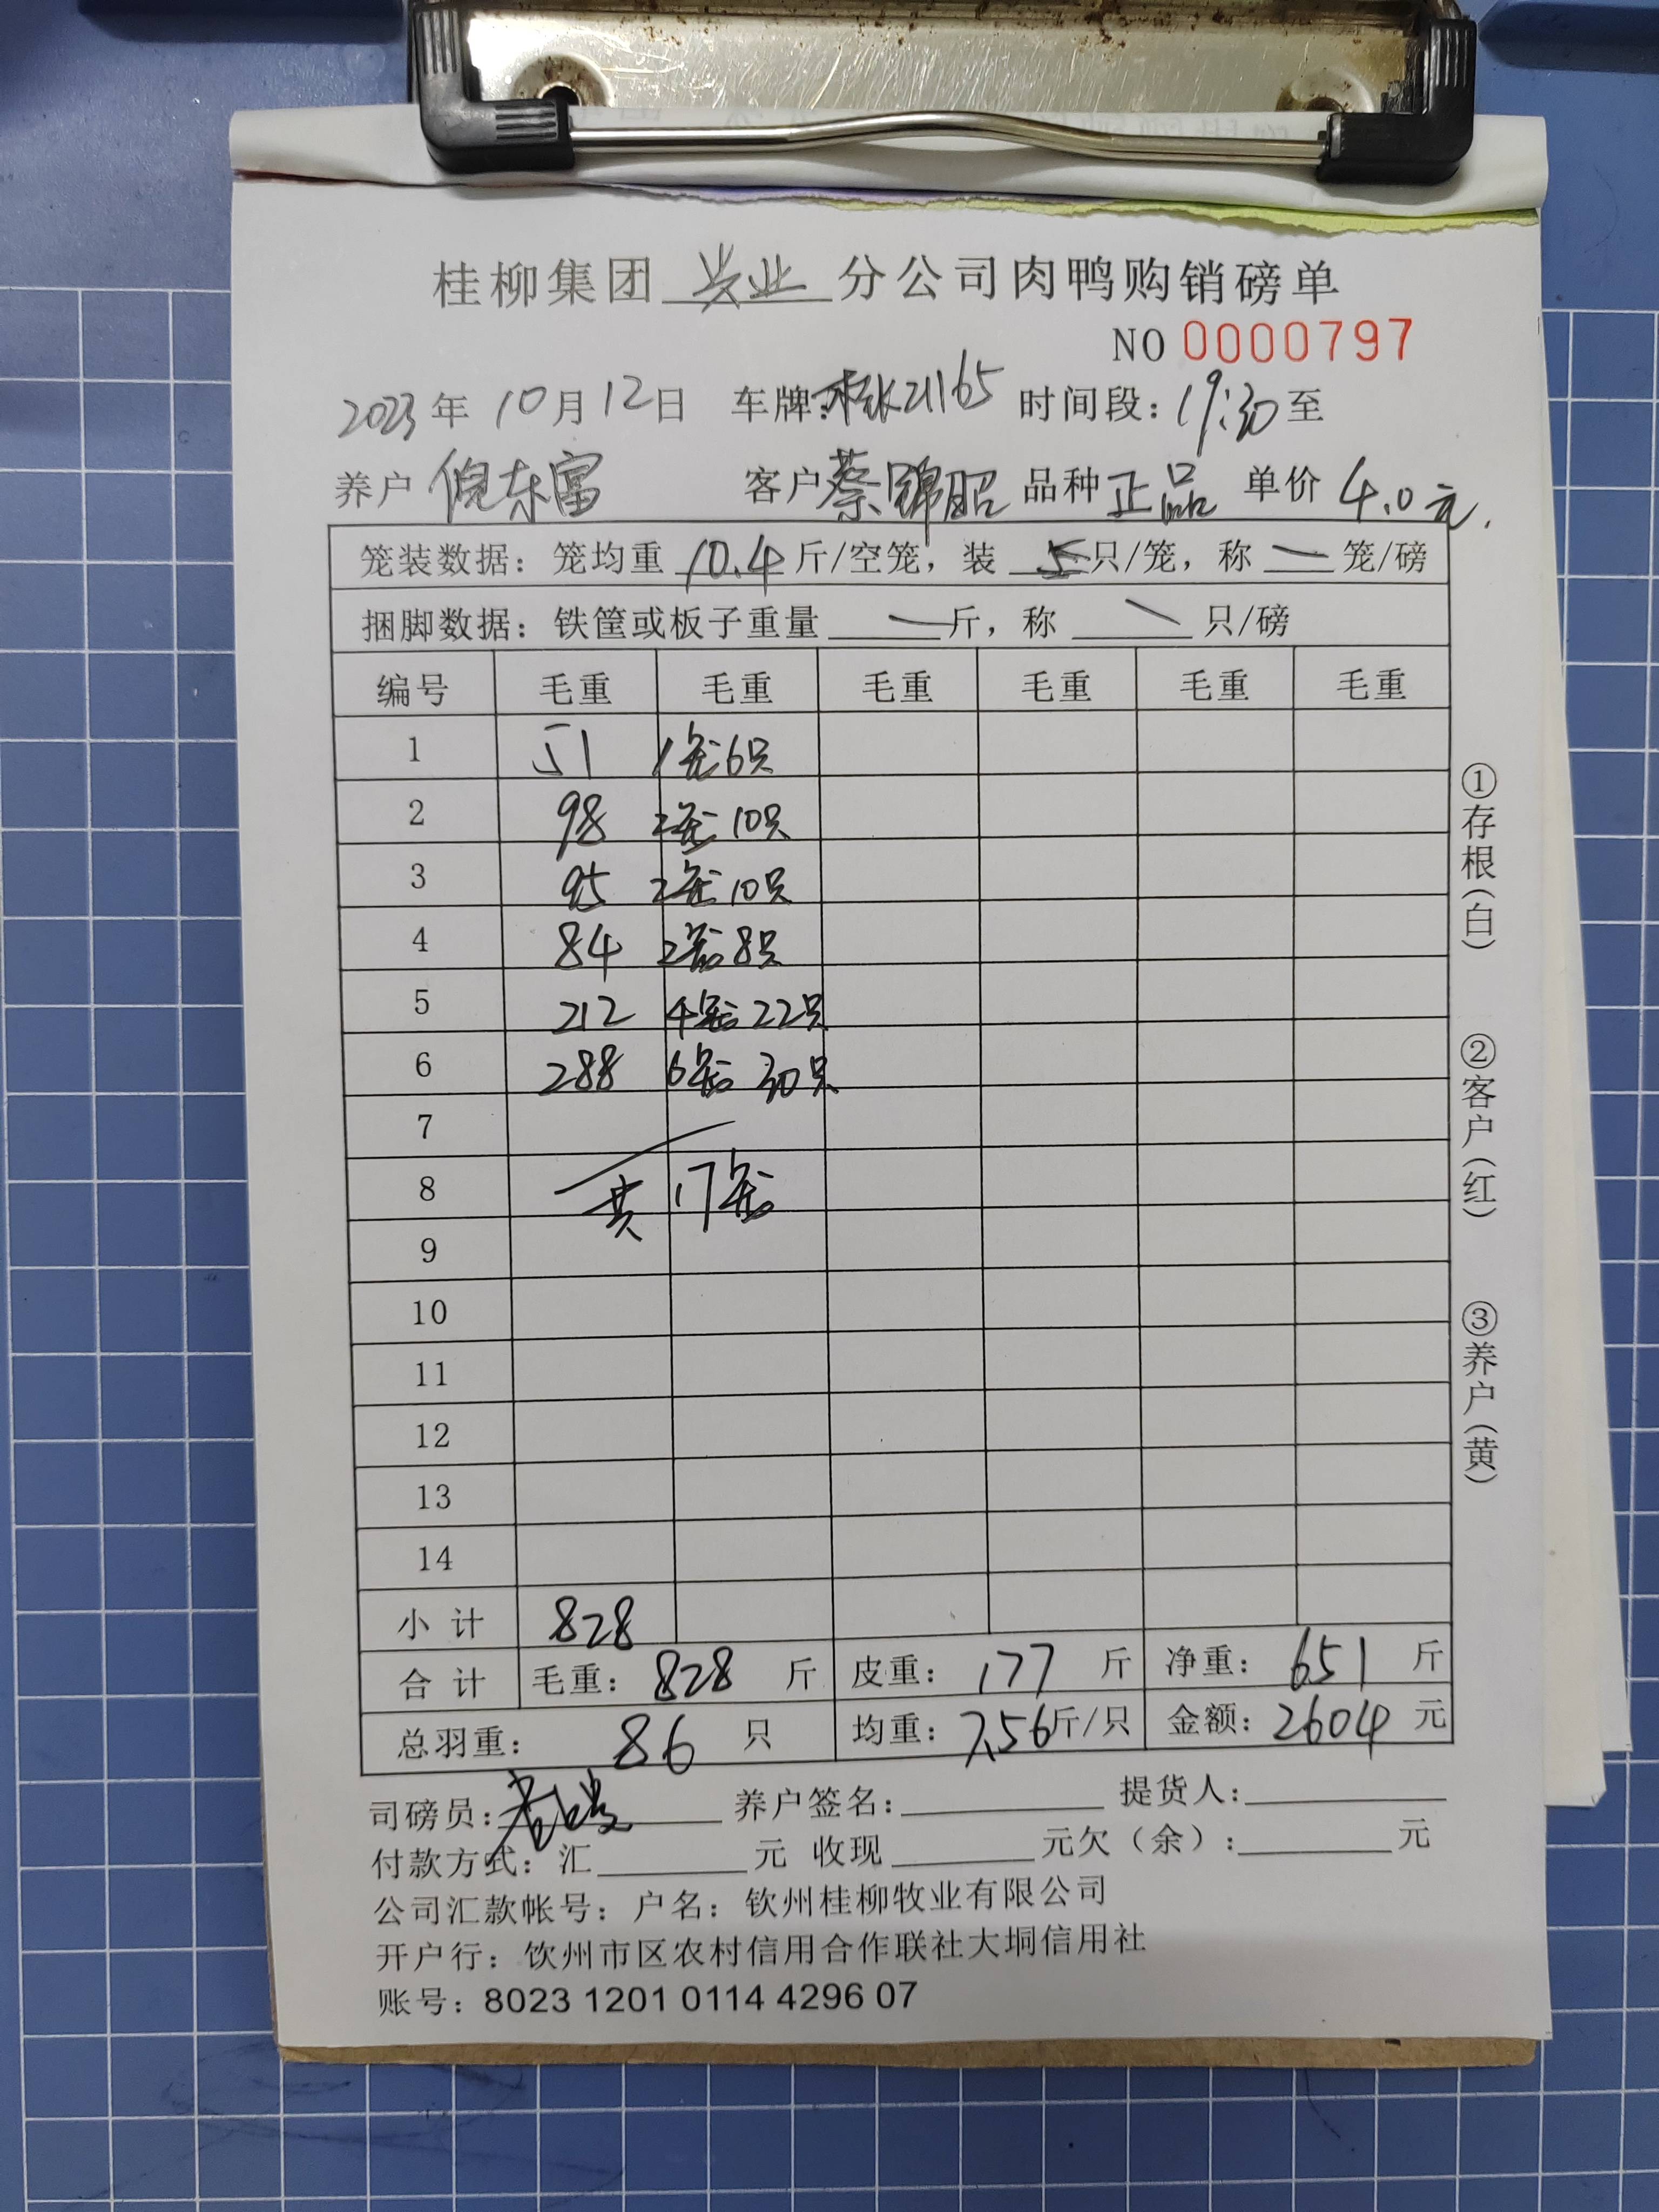 桂柳集团 兴业 分公司肉鸭购销磅单
NO 0000797
2023年 10月12日 车牌: 桂K21165 时间段: 19:30至
养户 倪东富 客户 蔡锦昭 品种 正品 单价 4.0元.
笼装数据: 笼均重 10.4 斤/空笼, 装 5 只/笼, 称 — 笼/磅
捆脚数据: 铁筐或板子重量 — 斤, 称 — 只/磅
编号 毛重 毛重 毛重 毛重 毛重 毛重
1 51 1笼6只
2 98 2笼10只
3 95 2笼10只
4 84 2笼8只
5 212 4笼22只
6 288 6笼30只
7
8 共17笼
9
10
11
12
13
14
小计 828
合计 毛重: 828 斤 皮重: 177 斤 净重: 651 斤
总羽重: 86 只 均重: 7.56斤/只 金额: 2604 元
司磅员: 养户签名: 提货人:
付款方式: 汇 元 收现 元欠(余): 元
公司汇款帐号: 户名: 钦州桂柳牧业有限公司
开户行: 饮州市区农村信用合作联社大垌信用社
账号: 8023 1201 0114 4296 07
①存根(白)
②客户(红)
③养户(黄)